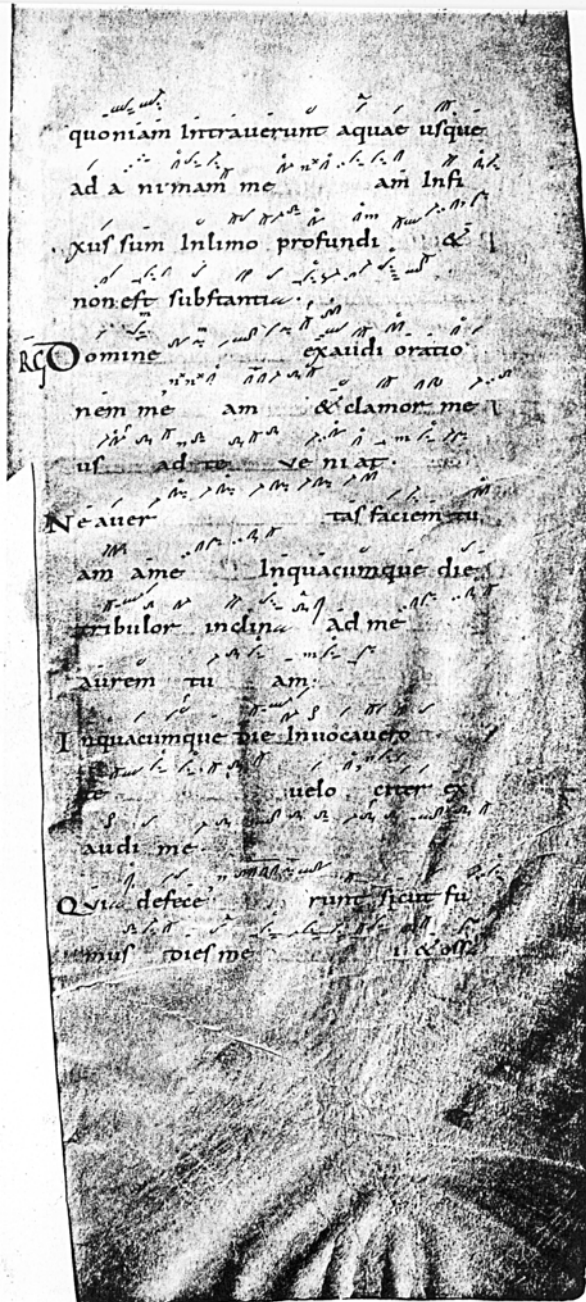 quoniam Intrauerunt aquae usque
ad a nimam me am Infi
xus sum Inlimo profundi &
non est substantia.
RG Domine exaudi oratio
nem me am & clamor me
us ad te ve ni at.
Ne aver tas faciem tu
am ame Inquacumque die
tribulor inclina ad me
aurem tu am:
Inquacumque die Invocavero
te velo citer ex
audi me.
Quia defece runt sicut fu
mus dies me i & ossa